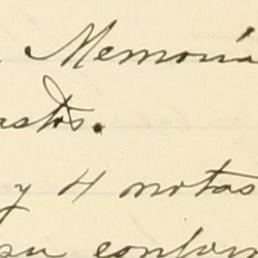 Memoria
astos.
y 4 notas
su conform